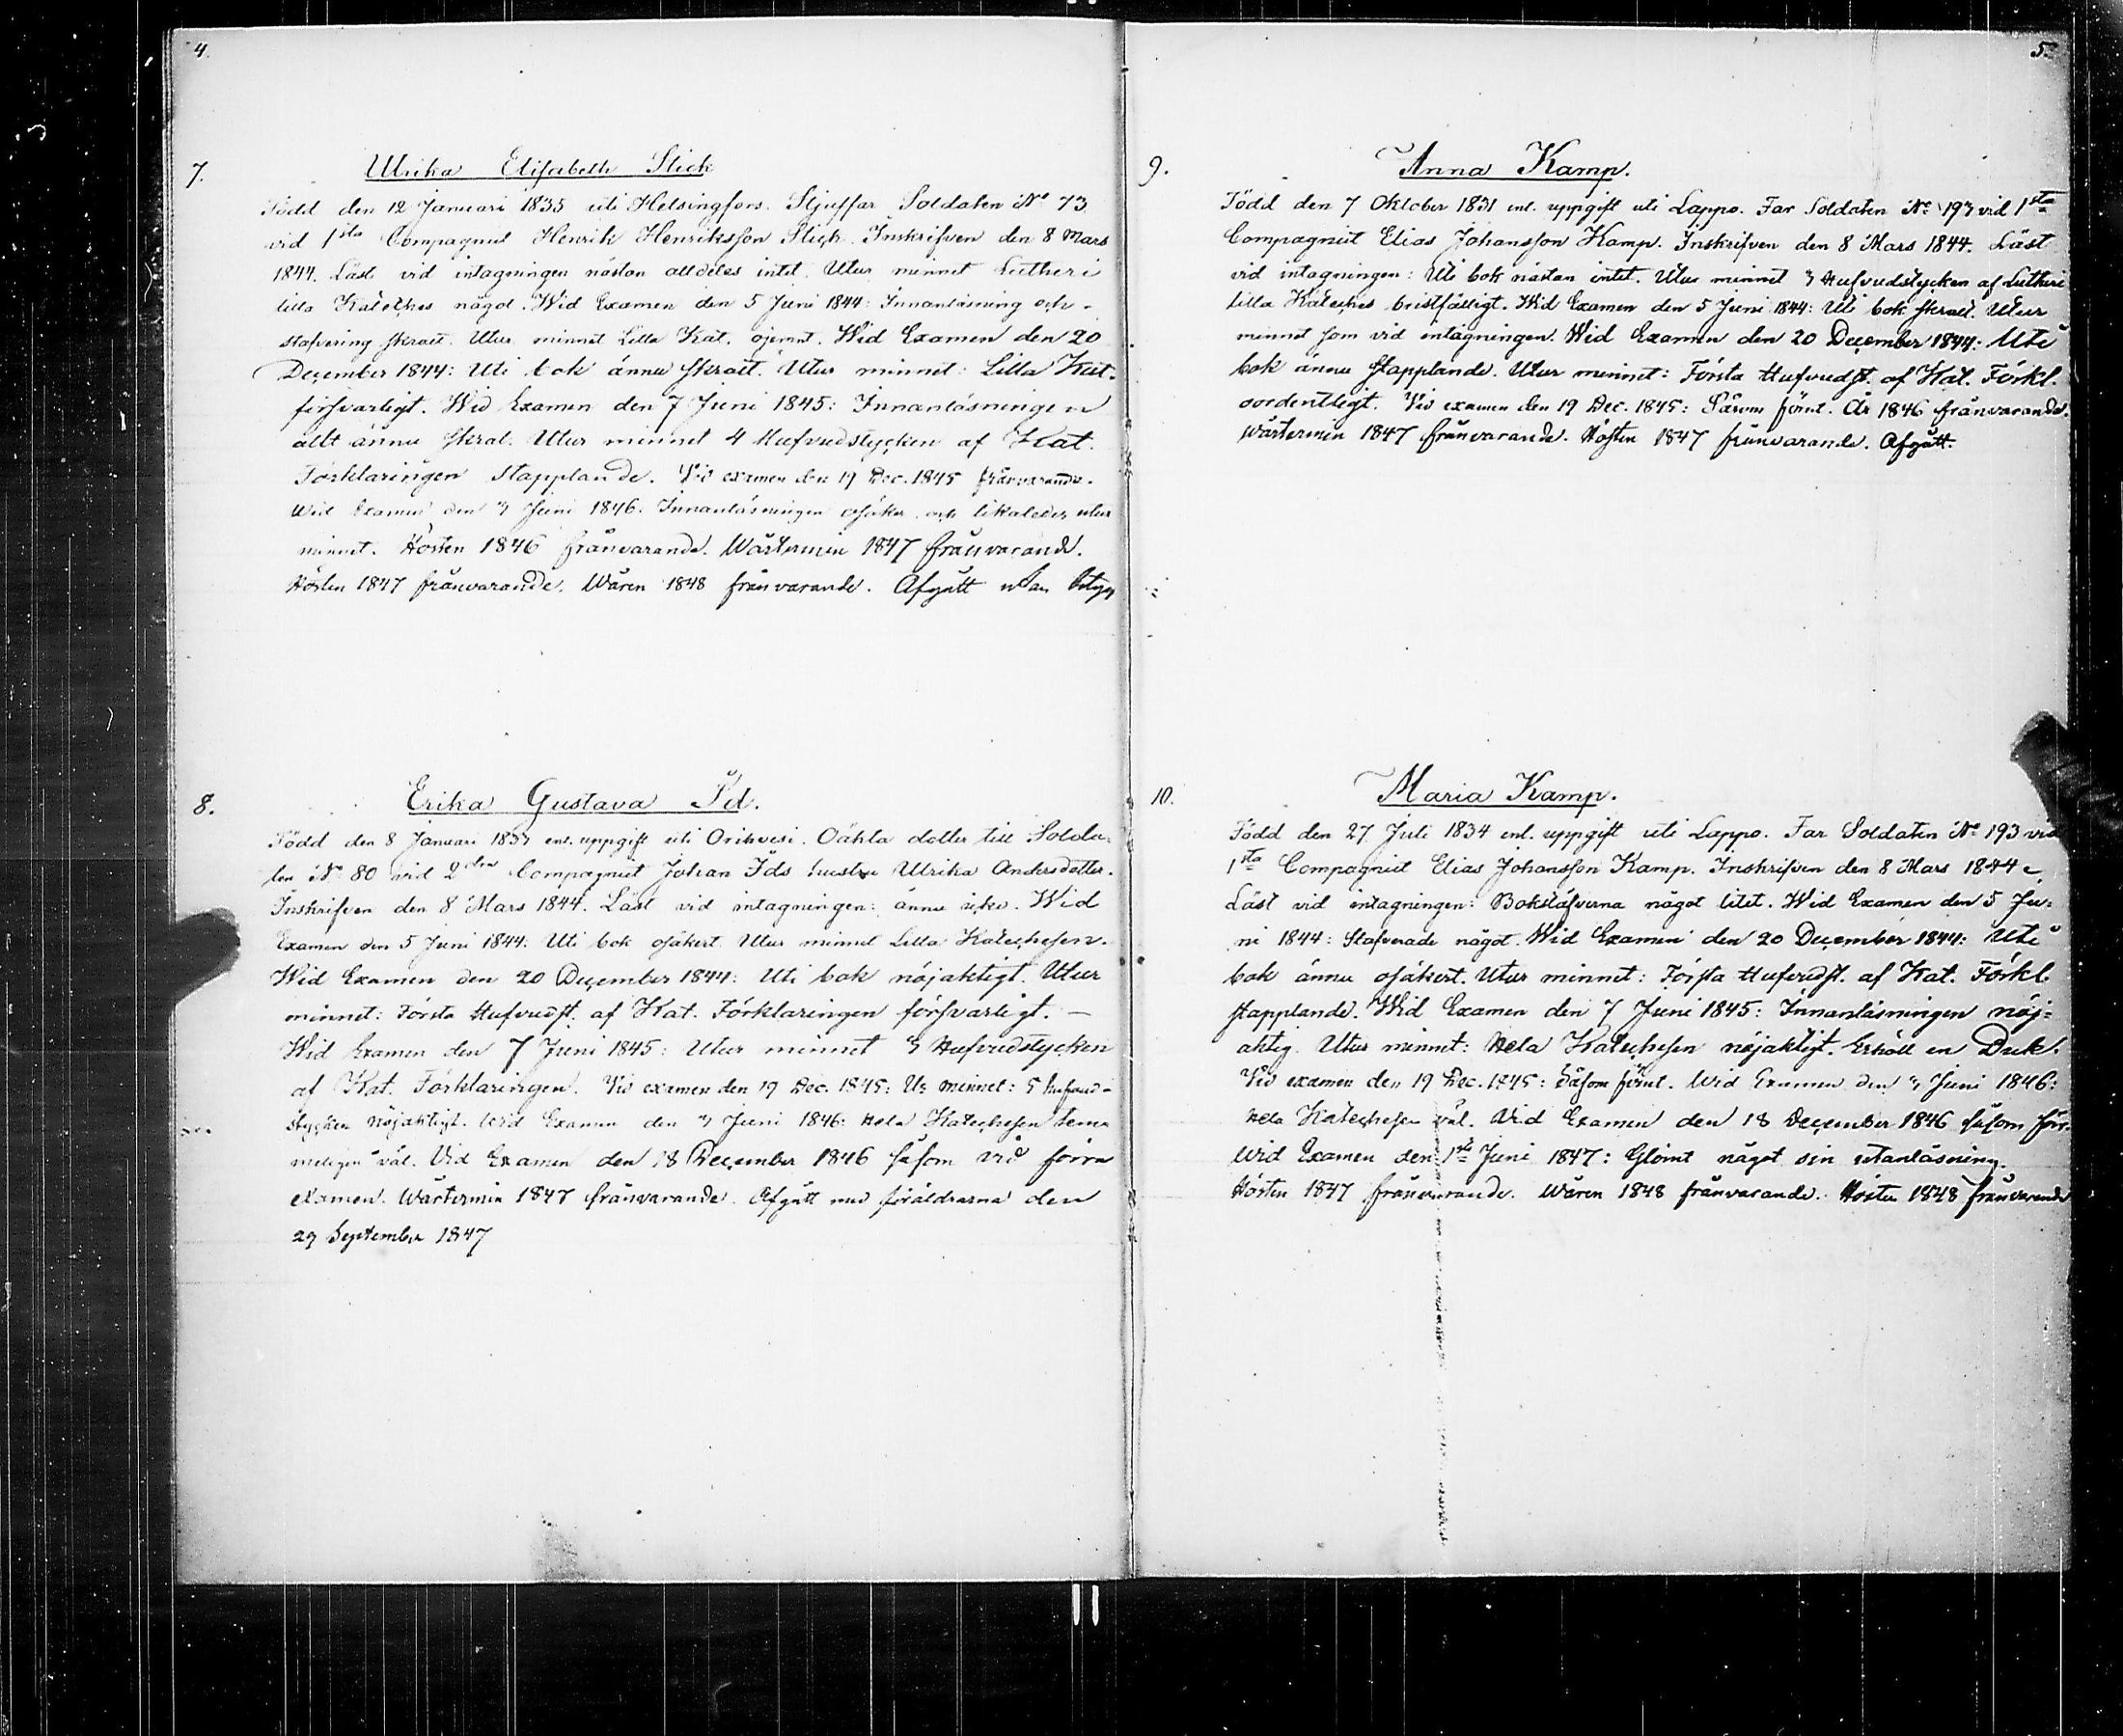 4.
7.
Ulrika Elisabeth Slick
Född den 12 Januari 1835 uti Helsingfors. Stjuffar Soldaten No 73
vid 1sta Compagniet Henrik Henriksson Slick. Inskrifven den 8 Mars
1844. Läst vid intagningen nästan alldeles intet. Utur minnet Lutheri
lilla Kateches något. Wid Examen den 5 Juni 1844: Innanläsning och
stafvering skralt. Utur minnet Lilla Kat. ojemnt. Wid Examen den 20
December 1844: Uti bok ännu skralt. Utur minnet: Lilla Kat.
försvarligt. Wid Examen den 7 Juni 1845: Innanläsningen
allt ännu skral. Utur minnet 4 Hufvudstycken af Kat.
Förklaringen stapplande. Vid examen den 19 Dec. 1845 frånvarande.
Wid Examen den 3 Juni 1846. Innanläsningen osäker och likaledes utur
minnet. Hösten 1846 frånvarande. Wårtermin 1847 frånvarand.
Hösten 1847 frånvarande. Wåren 1848 frånvarande. Afgått utan betyg
8.
Erika Gustava Id.
Född den 8 Januari 1833 enl. uppgift uti Orihvesi. Oäkta dotter till Solda-
ten No 80 vid 2dra Compagniet Johan Ids hustru Ulrika Andersdotter.
Inskrifven den 8 Mars 1844. Läst vid intagningen: ännu icke. Wid
Examen den 5 Juni 1844: Uti bok osäkert. Utur minnet Lilla Katechesen.
Wid Examen den 20 December 1844: Uti bok nöjaktigt. Utur
minnet: Första Hufvudst. af Kat. Förklaringen försvarligt. —
Wid Examen den 7 Juni 1845: Utur minnet 3 Hufvudstycken
af Kat. Förklaringen. Vid examen den 19 Dec. 1845: Ur minnet: 5 hufvud-
stycken nöjaktigt. Wid Examen den 3 Juni 1846: Hela Katechesen tem-
meligen väl. Vid Examen den 18 December 1846 såsom vid förra
examen. Wårtermin 1847 frånvarande. Afgått med föräldrarna den
29 September 1847
5.
9.
Anna Kamp.
Född den 7 Oktober 1831 enl. uppgift uti Lappo. Far Soldaten No 193 vid 1sta
Compagniet Elias Johansson Kamp. Inskrifven den 8 Mars 1844. Läst
vid intagningen: Uti bok nästan intet. Utur minnet 3 Hufvudstycken af Lutheri
lilla Kateches bristfälligt. Wid Examen den 5 Juni 1844: Uti bok skralt. Utur
minnet som vid intagningen. Wid Examen den 20 December 1844: Uti
bok ännu stapplande. Utur minnet: Första Hufvudst. af Kat. Förkl.
oordentligt. Vid examen den 19 Dec. 1845: Såsom förut. År 1846 frånvarande.
Wårtermin 1847 frånvarande. Hösten 1847 frånvarande. Afgått.
10.
Maria Kamp.
Född den 27 Juli 1834 enl. uppgift uti Lappo. Far Soldaten No 193 vid
1sta Compagniet Elias Johansson Kamp. Inskrifven den 8 Mars 1844.
Läst vid intagningen: Bokstäfverna något litet. Wid Examen den 5 Ju-
ni 1844: Stafverade något. Wid Examen den 20 December 1844: Uti
bok ännu osäkert. Utur minnet: Första Hufvudst. af Kat. Förkl.
stapplande. Wid Examen den 7 Juni 1845: Innanläsningen nöj-
aktig. Utur minnet: Hela Katechesen nöjaktigt. Erhöll en Duk.
Vid examen den 19 Dec. 1845: Såsom förut. Wid Examen den 3 Juni 1846:
Hela Katechesen väl. Vid Examen den 18 December 1846 såsom förr.
Wid Examen den 1sta Juni 1847: Glömt något sin utanläsning.
Hösten 1847 frånvarande. Wåren 1848 frånvarande. Hösten 1848 frånvarande